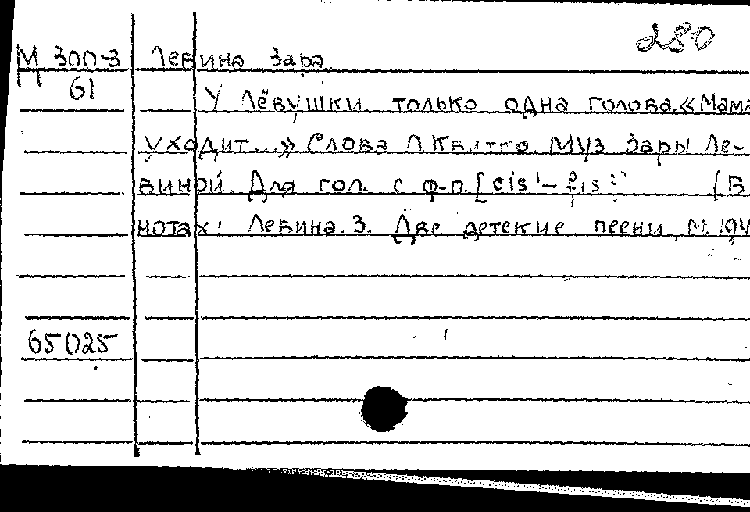 280
М 300-3 Левина Зара.
61
У Лёвушки только одна голова. «Мама
уходит...» Слова Л. Квитко. Муз Зары Ле-
виной. Для гол. с ф-п. [cis¹- [В
нотах: Левина. З. Две детские песни М. 194
65025